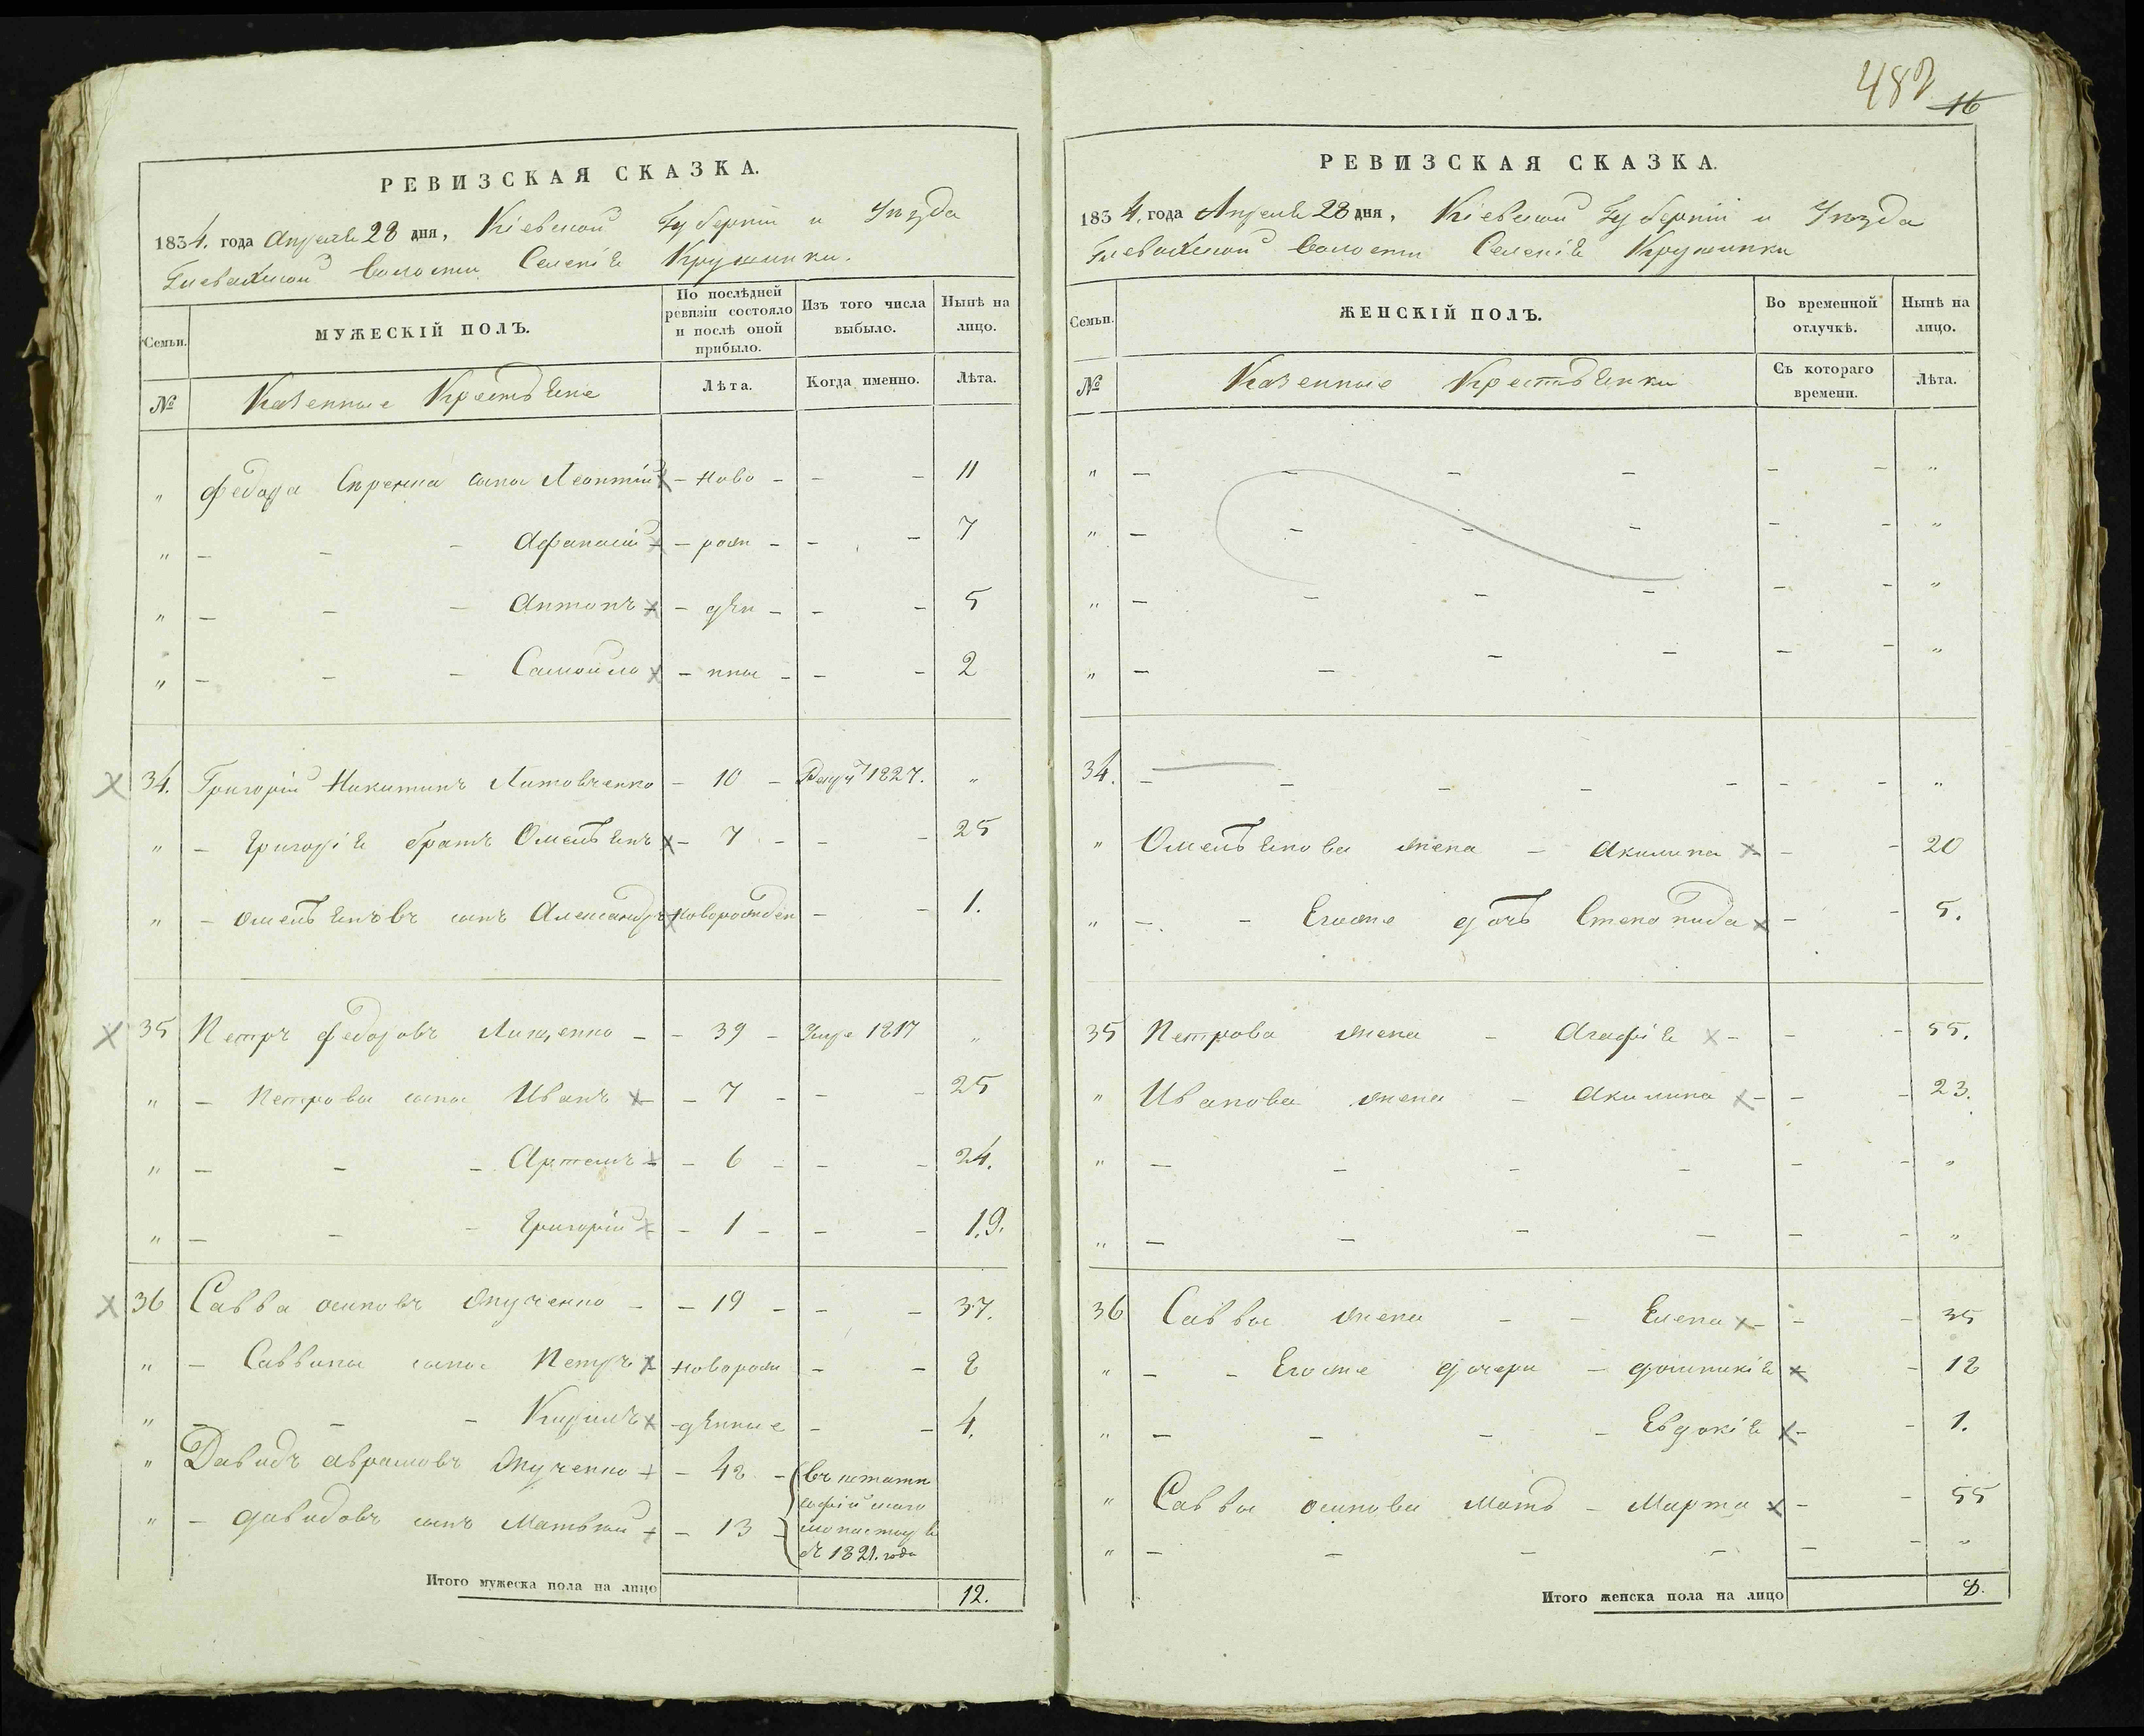 РЕВИЗСКАЯ СКАЗКА.
1834. года Апреля 28 дня, Кіевской Губерніи и Уѣзда
Глевахской волости Селенія Крушинки.
Семьи.
МУЖЕСКІЙ ПОЛЪ.
По послѣдней ревизіи состояло и послѣ оной прибыло.
Изъ того числа выбыло.
Нынѣ на лицо.
№
Казенные Крестьяне
Лѣта.
Когда именно.
Лѣта.
„ Федора сыны Леонтій - Ново - - - 11
„ - - - Афанасій - рож - - - 7
„ - - - Антонъ - дѣн - - - 5
„ - - - Самойло - ные - - - 2
34. Григорій Никитинъ Литовченко - 10 - 1827. „
„ - Григорія братъ Омельянъ - 7 - - - 25
„ - Омельяновъ сынъ Александръ Новорожден - - 1.
35 Петръ Федоровъ Лищенко - - 39 - Умре 1817 „
„ - Петровы сыны Иванъ - 7 - - - 25
„ - - - Артемъ - 6 - - - 24.
„ - - - Григорій - 1 - - - 19.
36 Савва Осиповъ - - 19 - - - 37.
„ - Саввины сыны Петръ Неворож - - 8
„ - - Кирилъ - дѣнные - - 4.
„ Давидъ Аврамовъ - 48 - въ штатн
софійскаго
„ - Давидовъ сынъ Матьвій - 13 - монастыря
съ 1821. года
Итого мужеска пола на лицо 12.
488
16
РЕВИЗСКАЯ СКАЗКА.
1834. года Апреля 28 дня, Кіевской Губерніи и Уѣзда
Глевахской волости Селенія Крушинки
Семьи.
ЖЕНСКІЙ ПОЛЪ.
Во временной отлучкѣ.
Нынѣ на лицо.
№
Казенные Крестьянки
Съ котораго времени.
Лѣта.
„ - - - - - - „
„ - - - - - - „
„ - - - - - - „
„ - - - - - - „
34. - - - - - - - „
„ Омельянова жена - Акилина - - 20
„ - - Егоже дочь Степонида - - 5.
35 Петрова жена - Агафія - - - 55.
„ Иванова жена - Акилина - - - 23.
„ - - - - - - „
„ - - - - - - „
36 Саввы жена - - Елена - - - 35
„ - - Егоже дочери - Домникія - 12
„ - - - - Евдокія - - 1.
„ Саввы Осипова мать - Марта - - 55
„ - - - - - - „
Итого женска пола на лицо 8.